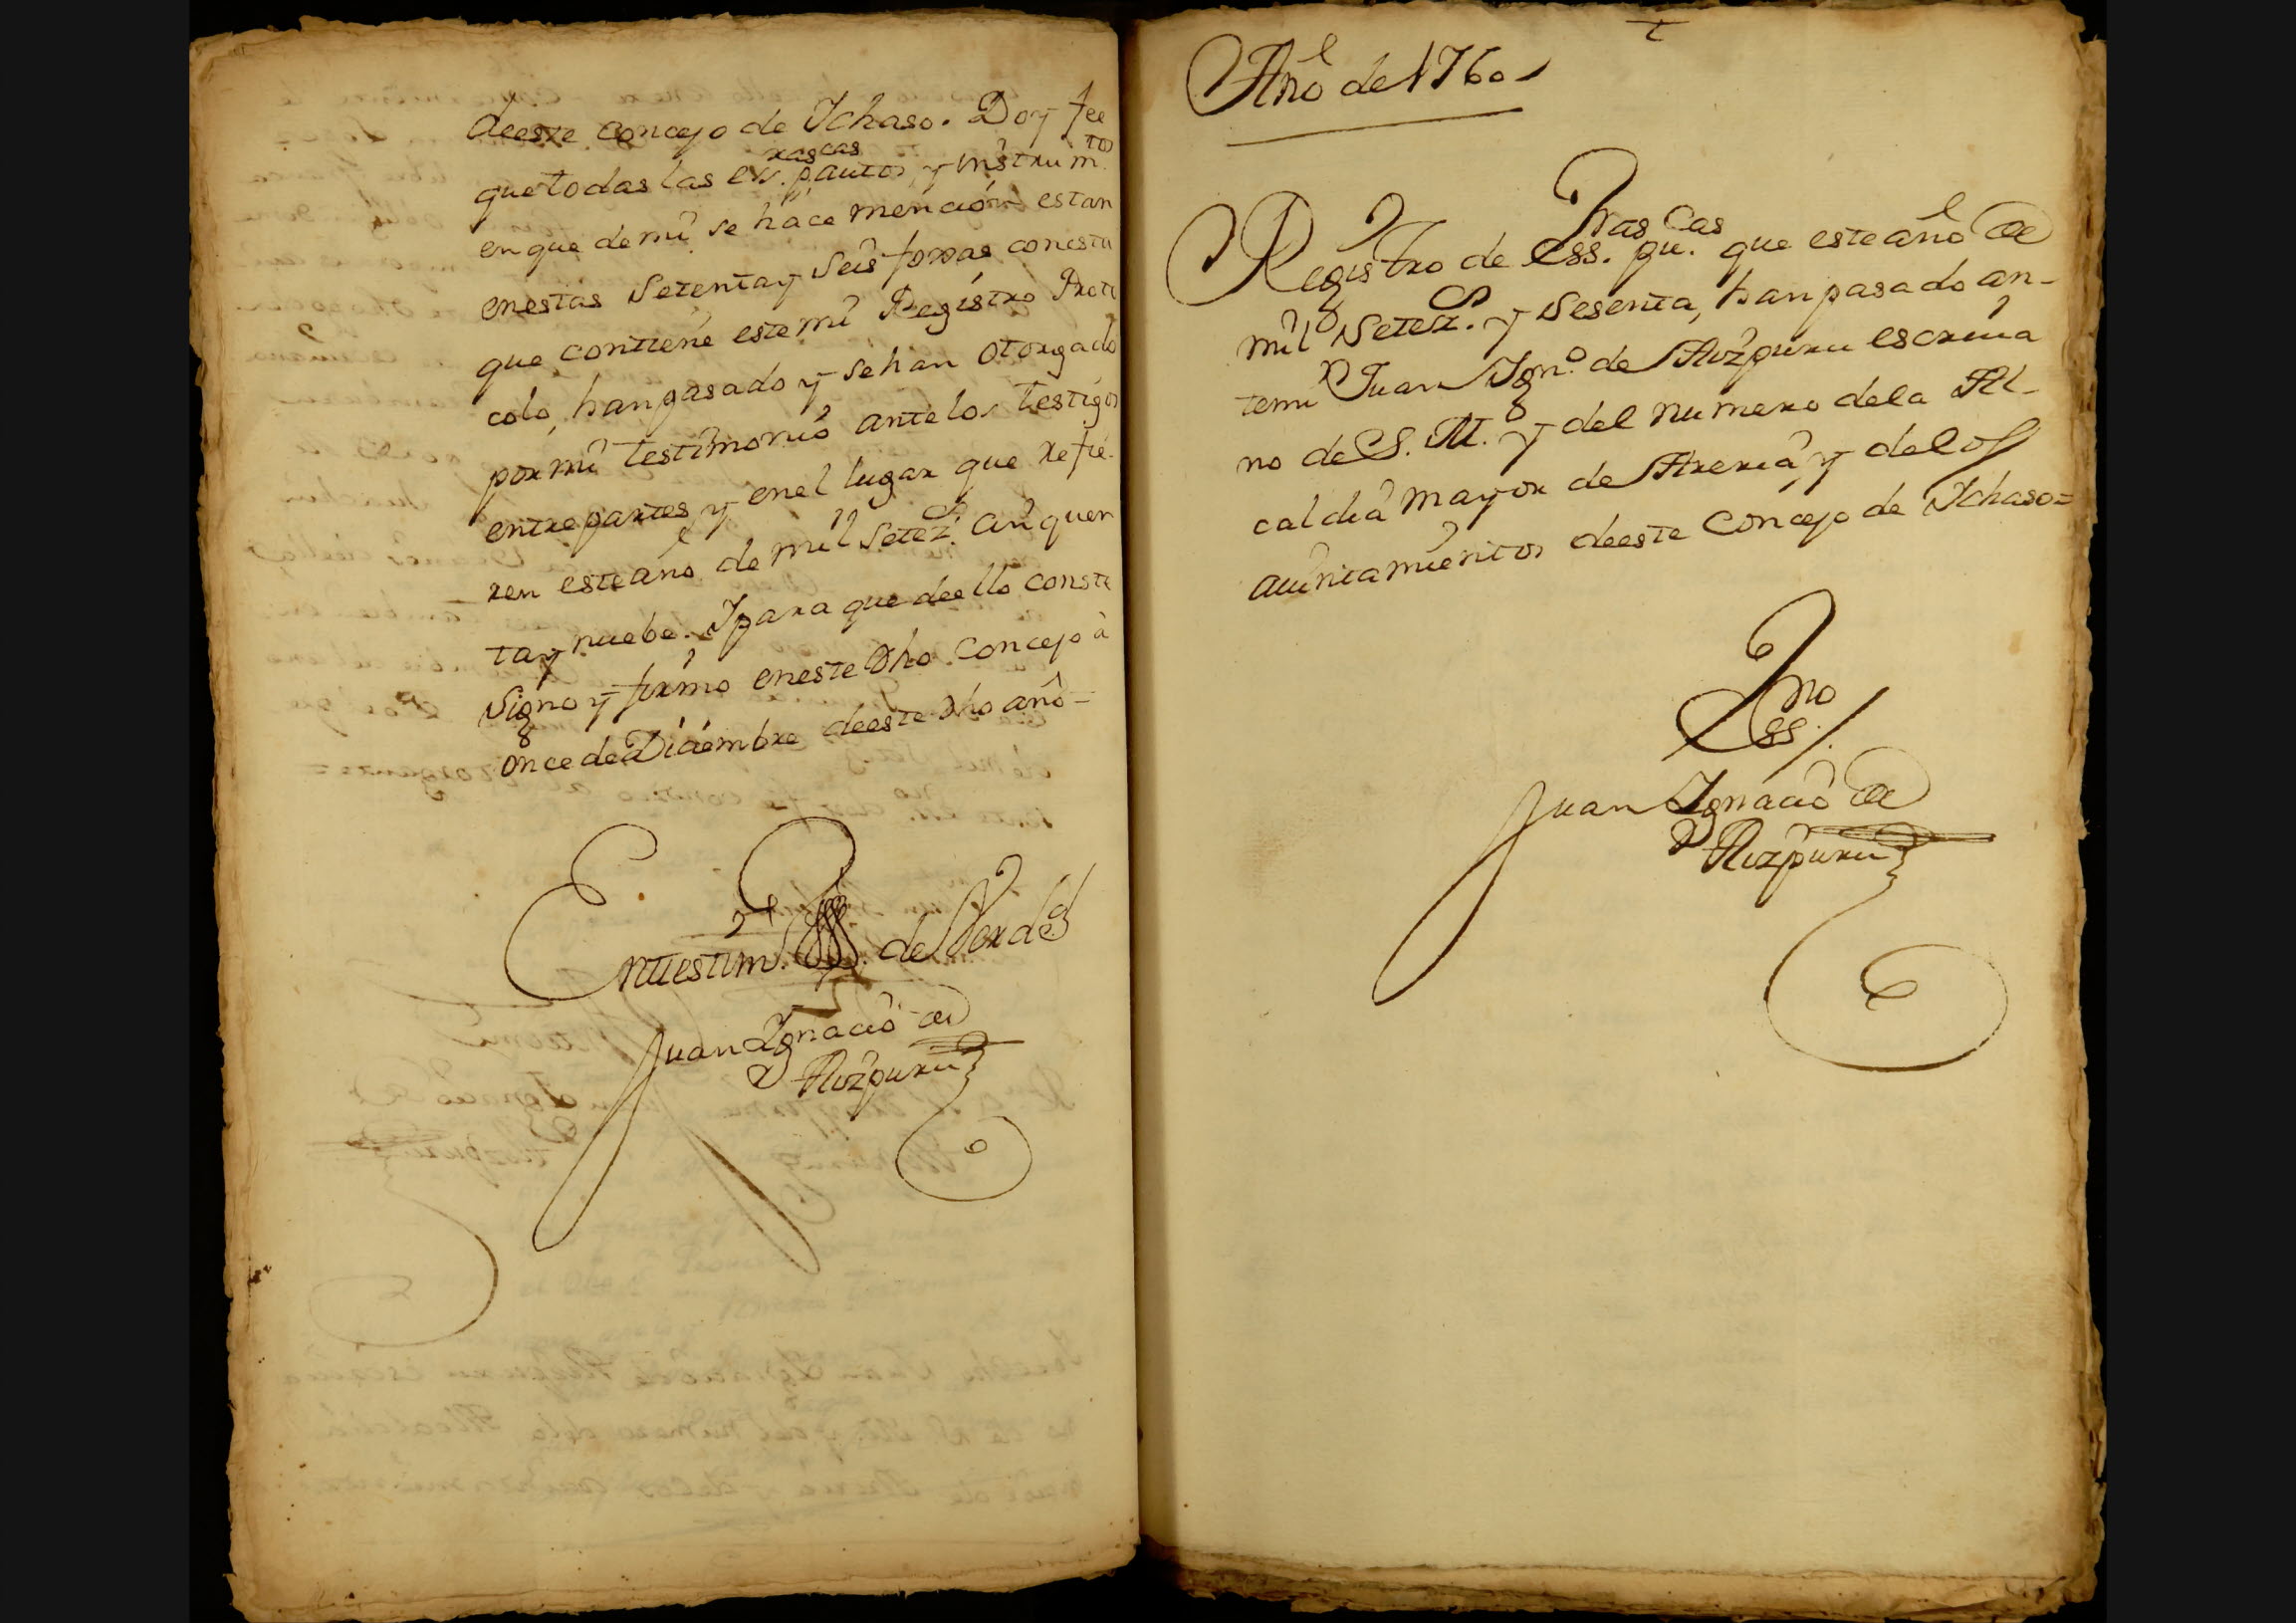 deeste concejo de Ychaso. Doy fee
que todas las ess.ras p.cas autos, y instrum.tos
en que de mi se háce menció̄n estan
en estas setenta y seis foxas con esta
que contiene este mi Registro Proto
colo, han pasado y se han otorgado
por mi testimonio ante los testigos
entre partes y en el lugar que refie-
ren este año de mil setez.s cinquen
ta y nuebe. Y para que de ello conste
signo y firmo en este dho Concejo à
once de Diciembre deeste dho año =
En testim.o de Verdad
Juan Ygnacio de
Aizpuru
Año de 1760
Registro de Ess.ras pu.cas que este año de
mil setez.s y sesenta, han pasado an-
te mi Juan Ygn.o de Aizpuru escriva
no de S. M. y del numero de la Al-
caldia mayor de Areria, y de los
aiuntamientos deeste Concejo de Ychaso=
Ess.no
Juan Ygnacio de
Aizpuru